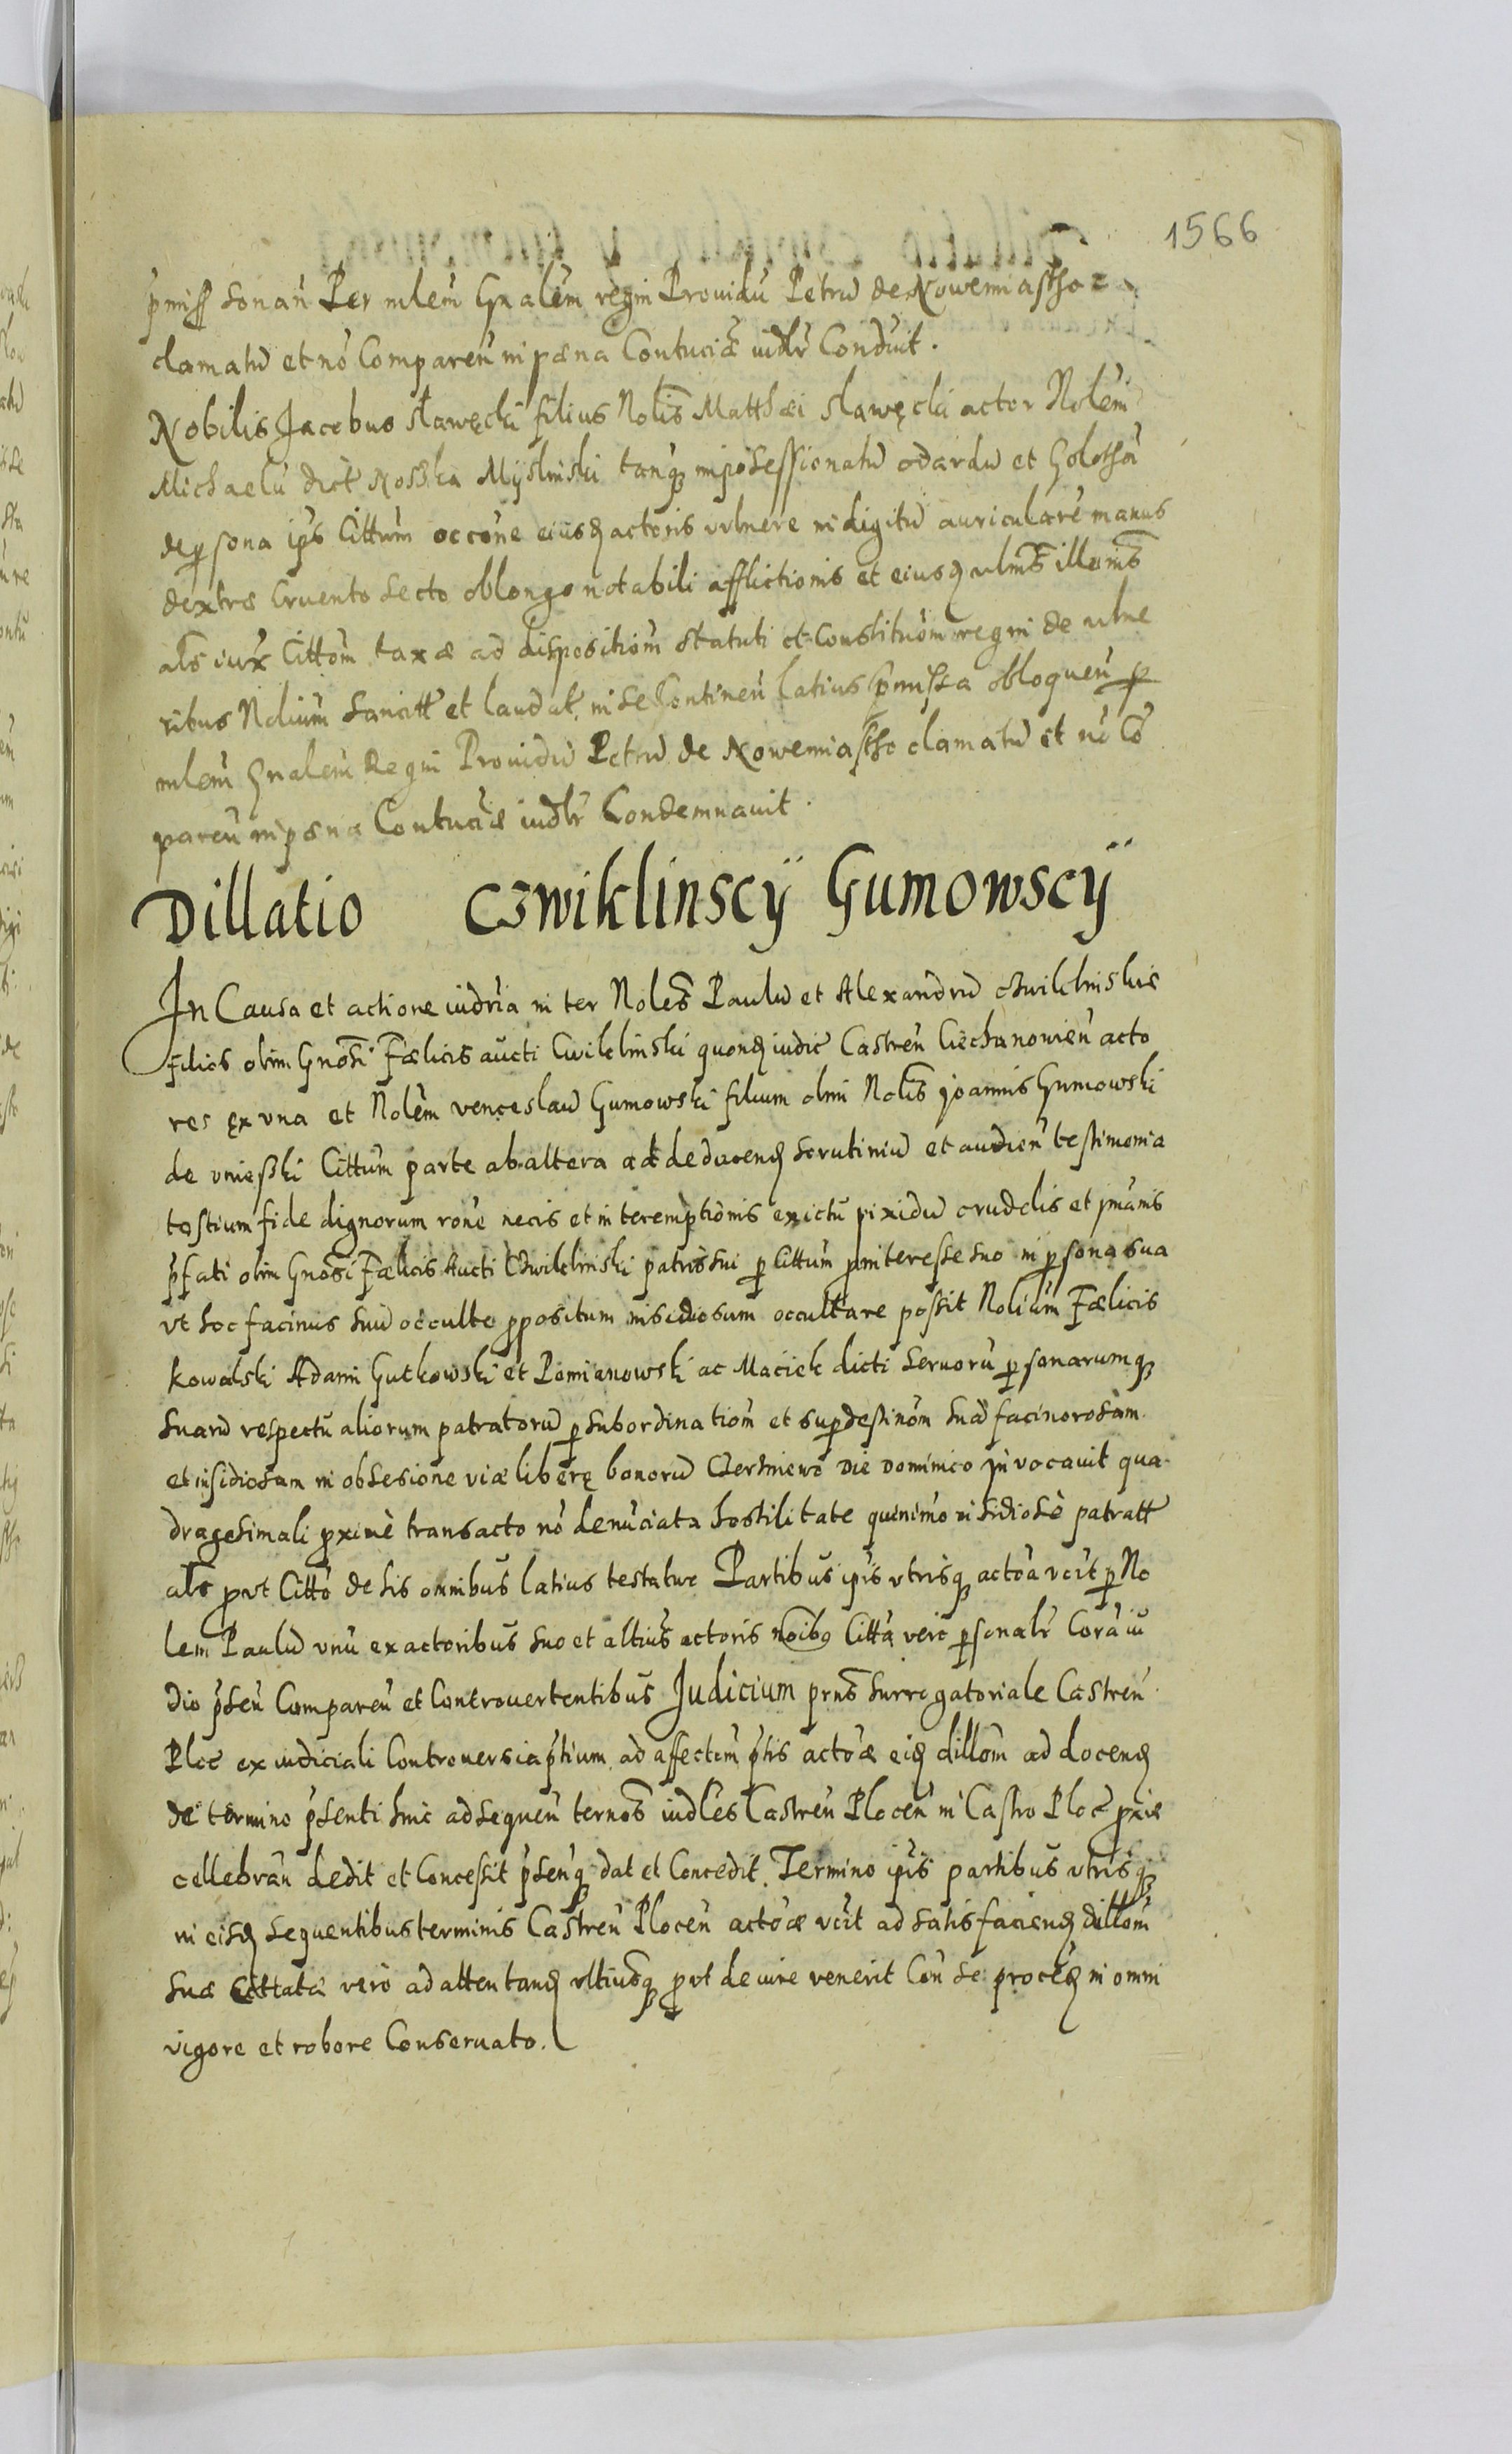 1566
pmiss sonan Per mlem Gnalem regni Prouidu Petru de Nowemiastho
clamatu et no Comparen in pæna Contuciæ iudlr Conduit.
Nobilis Jacobus sławęcki filius Nolis Matthæi sławęcki actor Nolem
Michaelu dict Noszka Myslinski tanq impossessionatu odardu et Golotha
de psona ips Cittum occone eiusd actoris vulnere in digitu auriculare manus
dextræ Cruento secto oblongo notabili afflictionis et eiusd vlnis illonis
als iux Cittom taxæ ad dispositiom statuti et Constituom regni de vlne
ribus Nolium sancitt et laudat. in se Continen latius pmissa obloquen p
mlem Gnalem Regni Prouidu Petru de Nowemiastho clamatu et no Co
paren in pæna Contuciæ iudlr Condemnauit.
Dillatio Czwiklinscÿ Gumowscÿ
In Causa et actione iudria in ter Noles Paulu et Alexandru Czwiklinskie
filios olim Gnosi Fælicis aucti Cwiklinski quond iudic Castren Ciechanouien acto
res ex vna et Nolem venceslau Gumowski filium olim Nolis joannis Gumowski
de vnieski Cittum parte ab altera ad deducend scrutiniu et audien testimonia
testium fide dignorum rone necis et in teremptionis ex ictu pixidu crudelis et jmanis
pfati olim Gnosi Fælicis Aucti Czwiklinski patris sui p Cittum pm interesse suo in psona sua
vt hoc facinus suu occulte ppositum insidiosum occultare possit Nolium Fælicis
kowalski Adami Gutkowski et Pomianowski ac Maciek dicti seruoru psonarumq
suaru respectu aliorum patratoru p subordinatiom et supdestinom sua facinorosam
et insidiosam in obsesione viæ liberę bonoru Czerniewo die dominico Invocauit qua
dragesimali pxime transacto no denuciata hostilitate quinimo insidiosè patratt
als pvt Citto de his omnibus latius testatur Partibus ipis vtrisq actoa vcit p No
lem Paulu vnu ex actoribus suo et altius actoris noibo Citta vero psonalr Cora iu
dio psen Comparen et Controuertentibus Judicium prns surrogatoriale Castren
Ploc ex iudiciali Controuersia ptium ad affectem ptis actoæ eid dillom ad docend
de termino psenti hinc ad sequen ternos iudles Castren Plocen in Castro Ploc pxie
cellebran dedit et Concessit psenq dat et Concedit. Termino ipis partibus vtrisq
in eisd sequentibus terminis Castren Plocen actoæ vcit ad satis faciend dillom
suæ Cittatæ verò ad attentand vltiusq pvt de iure venerit Con se proced in omni
vigore et robore Conseruato.